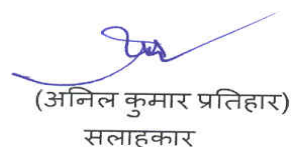 (अनिल कुमार प्रतिहार)
सलाहकार